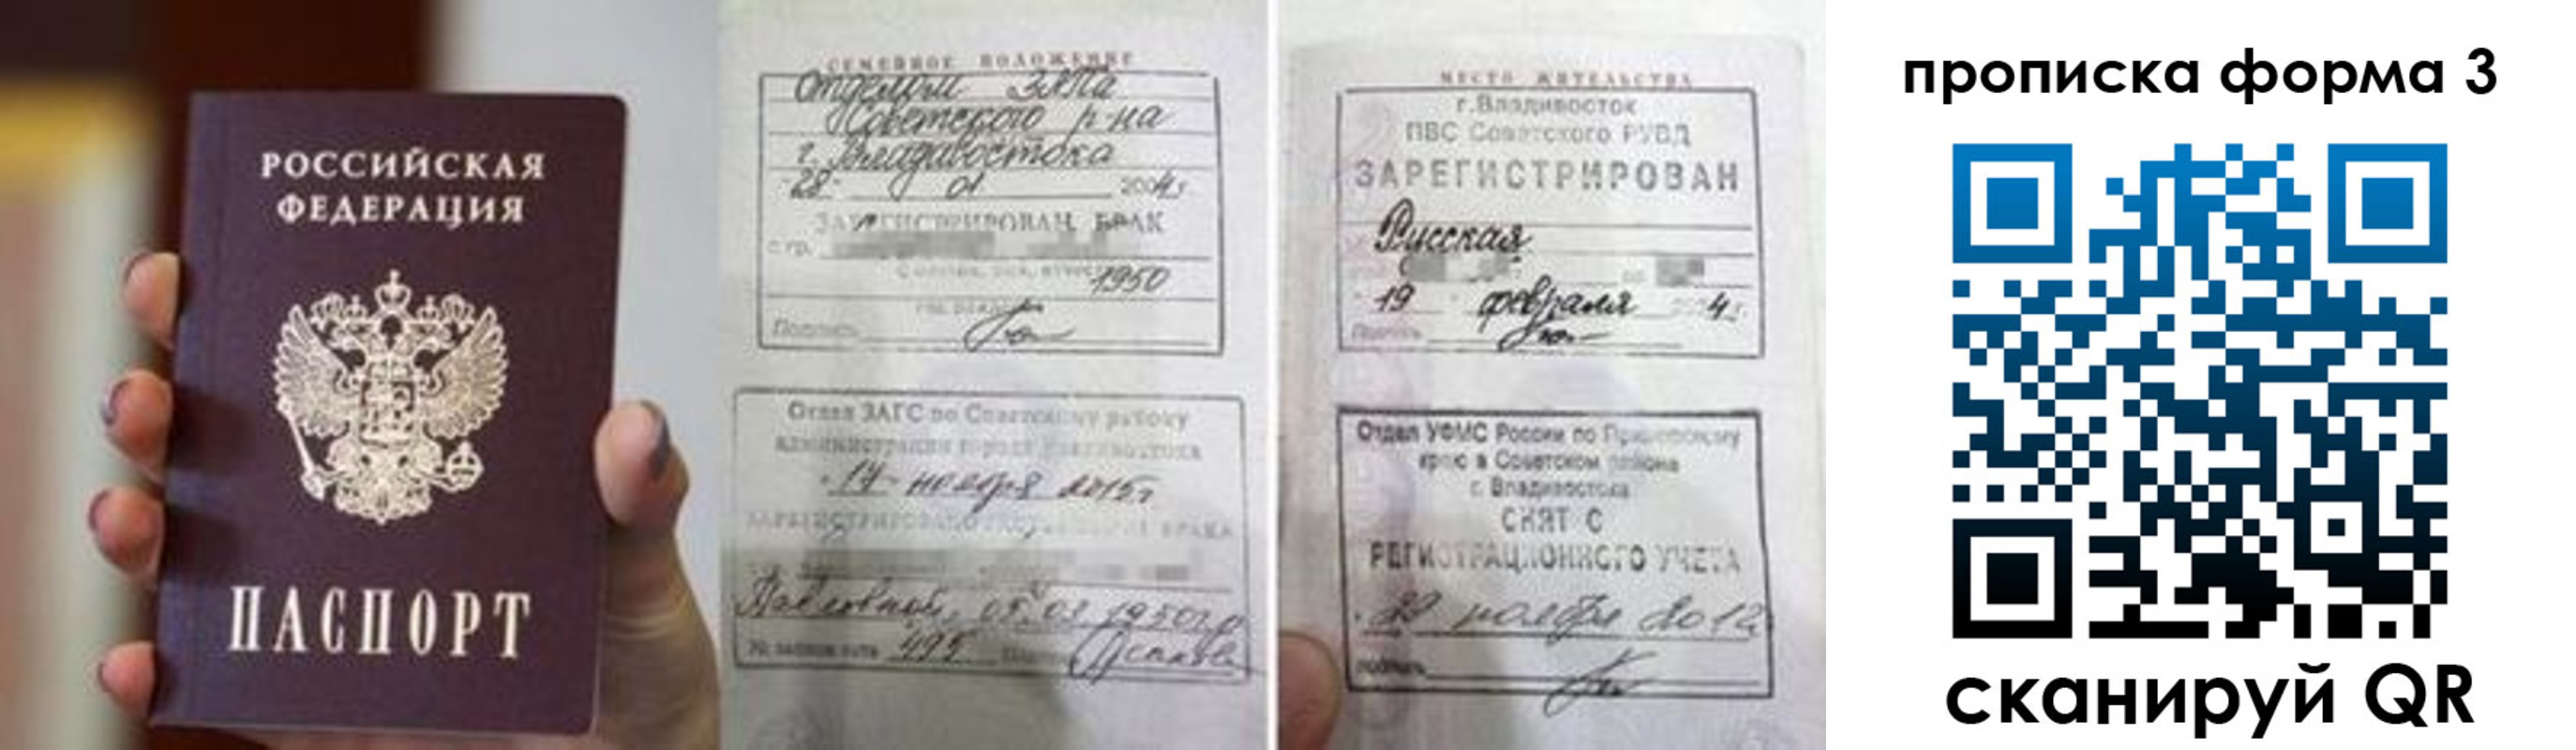 РОССИЙСКАЯ
ФЕДЕРАЦИЯ
ПАСПОРТ
СЕМЕЙНОЕ ПОЛОЖЕНИЕ
Отделом ЗАГСа
Советского р-на
г. Владивостока
"28" 01 2004г.
ЗАРЕГИСТРИРОВАН БРАК
с гр.
1950
Подпись
Отдел ЗАГС по Советскому району
администрации города Владивостока
"17" ноября 2015г
БРАКА
Павловной, 05.03.1950г.р
№ записи акта 495
МЕСТО ЖИТЕЛЬСТВА
г.Владивосток
ПВС Советского РУВД
ЗАРЕГИСТРИРОВАН
Русская
19 февраля 4г.
Подпись
Отдел УФМС России по Приморскому
краю в Советском районе
г. Владивостока
СНЯТ С
РЕГИСТРАЦИОННОГО УЧЕТА
ноября 2012
подпись
прописка форма 3
сканируй QR